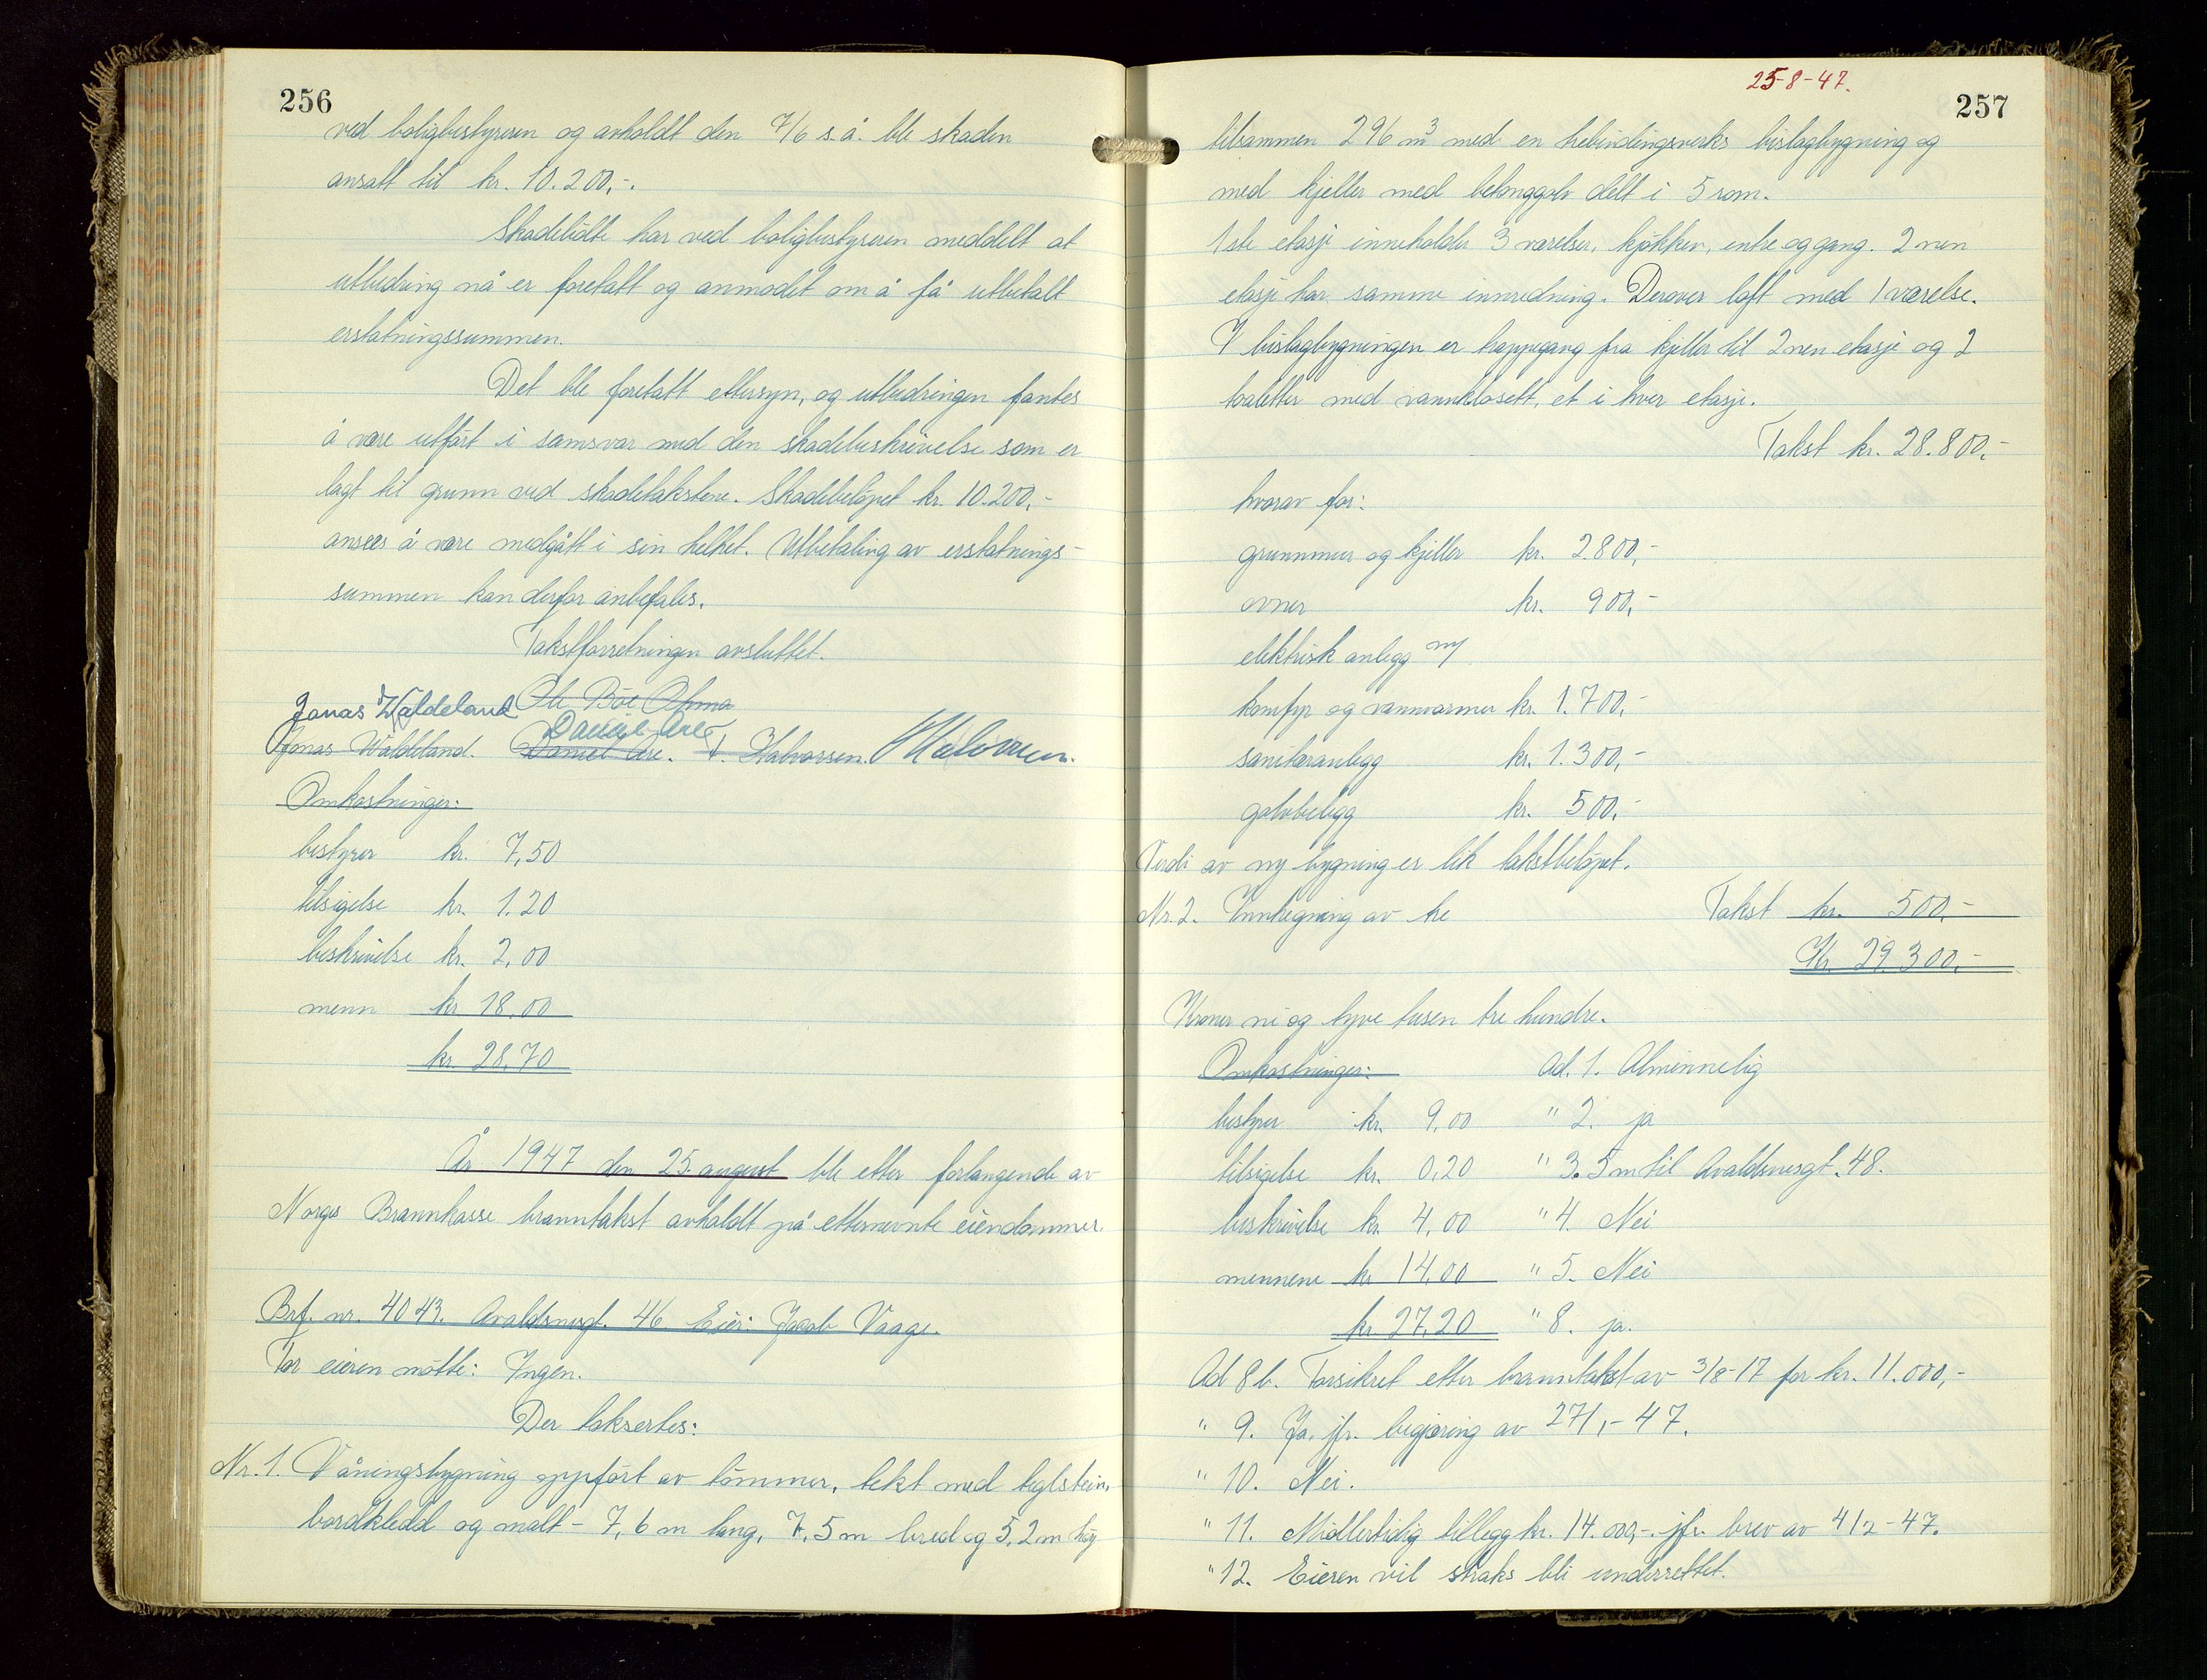 256
ved boligbestyreren og avholdt den 7/6 s.å. ble skaden
ansatt til kr. 10.200,-.
Skadelidte har ved boligbestyreren meddelt at
utbedring nå er foretatt og anmodet om å få utbetalt
erstatningssummen.
Det ble foretatt ettersyn, og utbedringen fantes
å være utført i samsvar med den skadebeskrivelse som er
lagt til grunn ved skadetakstene. Skadebeløpet kr. 10.200,-
ansees å være medgått i sin helhet. Utbetaling av erstatnings-
summen kan derfor anbefales.
Takstforretningen avsluttet.
Jonas Waldeland Ole Böe
Jonas Waldeland. Daniel Are. T. Halvorsen. T Halvorsen.
Omkostninger:
bestyrer kr. 7,50
tilsigelse kr. 1.20
beskrivelse kr. 2,00
menn kr 18,00
kr. 28,70
År 1947 den 25. august ble etter forlangende av
Norges Brannkasse branntakst avholdt på etternevnte eiendommer.
Brf. nr. 4043. Avaldsnesgt. 46. Eier: Jacob Vaage.
For eieren møtte: Ingen.
Der taksertes:
Nr. 1. Våningsbygning oppført av tømmer, tekt med teglstein,
bordkledd og malt - 7,6 m lang, 7,5 m bred og 5,2 m høy
25-8-47.
257
tilsammen 296 m³ med en trebindingsverks bislagbygning og
med kjeller med betonggolv delt i 5 rom.
1ste etasje inneholder 3 værelser, kjøkken, entre og gang. 2nen
etasje har samme innredning. Derover loft med 1 værelse.
I bislagbygningen er trappegang fra kjeller til 2nen etasje og 2
toaletter med vannklosett, et i hver etasje.
Takst kr. 28.800,-
hvorav for:
grunnmur og kjeller kr. 2.800,-
ovner kr. 900,-
elektrisk anlegg
komfyr og vannvarmer kr. 1.700,-
sanitæranlegg kr. 1.300,-
golvbelegg kr. 500,-
Verdi av ny bygning er lik takstbeløpet.
Nr. 2. Innhegning av tre Takst kr. 500,-
Kr. 29.300,-
Kroner ni og tyve tusen tre hundre.
Omkostninger: Ad. 1. Alminnelig
bestyrer kr. 9,00 " 2. ja
tilsigelse kr. 0,20 " 3. 5 m til Avaldsnesgt. 48.
beskrivelse kr. 4,00 " 4. Nei
mennene kr 14,00 " 5. Nei
kr. 27,20 " 8. ja.
Ad 8 b. Forsikret etter branntakst av 3/8-17 for kr. 11.000,-
" 9. Ja, jfr. begjæring av 27/1-47.
" 10. Nei.
" 11. Midlertidig tillegg kr. 14.000,-. jfr. brev av 4/2-47.
" 12. Eieren vil straks bli underrettet.